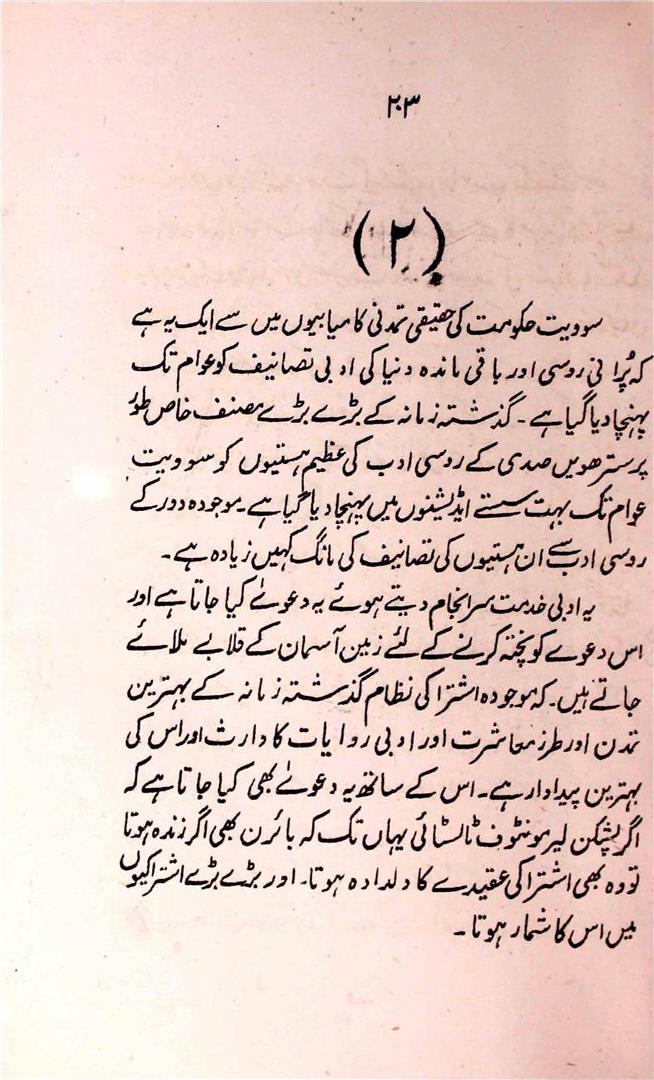 ۲۰۳
(۲)
سوویت حکومت کی حقیقی تمدنی کامیابیوں میں سے ایک یہ ہے
کہ پُرانی روسی اور باقی ماندہ دنیا کی ادبی تصانیف کو عوام تک
پہنچا دیا گیا ہے۔ گذشتہ زمانہ کے بڑے بڑے مصنف خاص طور
پر سترھویں صدی کے روسی ادب کی عظیم ہستیوں کو سوویت
عوام تک بہت سستے ایڈیشنوں میں پہنچا دیا گیا ہے۔ موجودہ دور کے
روسی ادب سے ان ہستیوں کی تصانیف کی مانگ کہیں زیادہ ہے۔
یہ ادبی خدمت سرانجام دیتے ہوئے یہ دعوےٰ کیا جاتا ہے اور
اس دعوے کو پختہ کرنے کے لئے زمین آسمان کے قلابے ملائے
جاتے ہیں۔ کہ موجودہ اشتراکی نظام گذشتہ زمانہ کے بہترین
تمدن اور طرز معاشرت اور ادبی روایات کا وارث اور اس کی
بہترین پیداوار ہے۔ اس کے ساتھ یہ دعوےٰ بھی کیا جاتا ہے کہ
اگر پشکن لیرمونٹوف ٹالسٹائی یہاں تک کہ بائرن بھی اگر زندہ ہوتا
تو وہ بھی اشتراکی عقیدے کا دلدادہ ہوتا۔ اور بڑے بڑے اشتراکیوں
میں اس کا شمار ہوتا۔